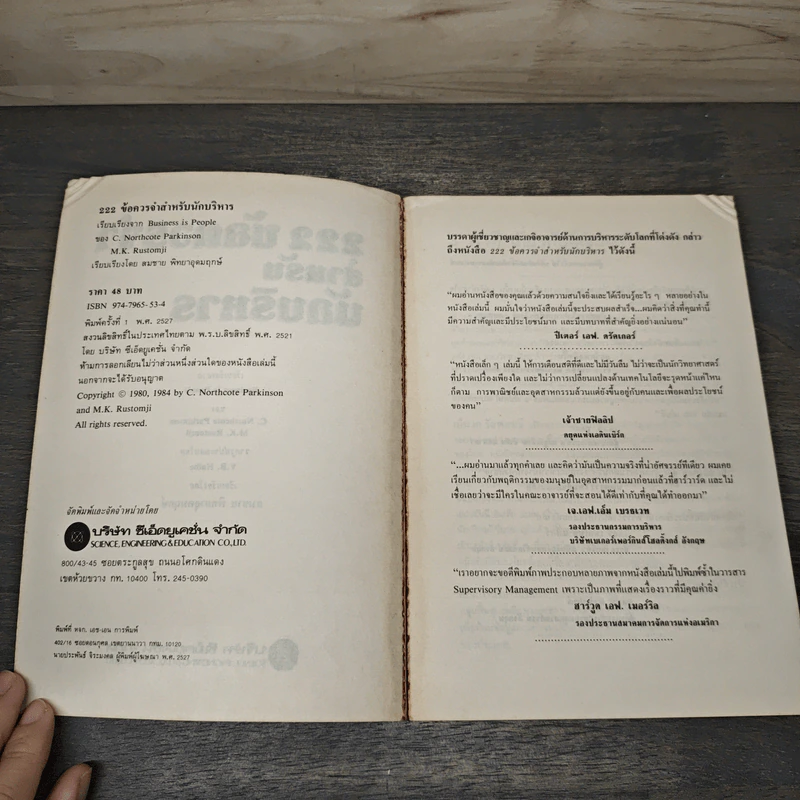 222 ข้อควรจำสำหรับนักบริหาร
เรียบเรียงจาก Business is People
ของ C. Northcote Parkinson
M.K. Rustomji
เรียบเรียงโดย สมชาย พิทยาอุดมฤกษ์
ราคา 48 บาท
ISBN 974-7965-53-4
พิมพ์ครั้งที่ 1 พ.ศ. 2527
สงวนลิขสิทธิ์ในประเทศไทยตาม พ.ร.บ.ลิขสิทธิ์ พ.ศ. 2521
โดย บริษัท ซีเอ็ดยูเคชั่น จำกัด
ห้ามการลอกเลียนไม่ว่าส่วนหนึ่งส่วนใดของหนังสือเล่มนี้
นอกจากจะได้รับอนุญาต
Copyright © 1980, 1984 by C. Northcote Parkinson
and M.K. Rustomji
All rights reserved.
จัดพิมพ์และจัดจำหน่ายโดย
บริษัท ซีเอ็ดยูเคชั่น จำกัด
SCIENCE, ENGINEERING & EDUCATION CO., LTD.
800/43-45 ซอยตระกูลสุข ถนนอโศกดินแดง
เขตห้วยขวาง กท. 10400 โทร. 245-0390
พิมพ์ที่ หจก. เอช-เอน การพิมพ์
402/16 ซอยดอนกุศล เขตยานนาวา กทม. 10120
นายประพันธ์ จิระมงคล ผู้พิมพ์ผู้โฆษณา พ.ศ. 2527
บรรดาผู้เชี่ยวชาญและเกจิอาจารย์ด้านการบริหารระดับโลกที่โด่งดัง กล่าว
ถึงหนังสือ 222 ข้อควรจำสำหรับนักบริหาร ไว้ดังนี้
"ผมอ่านหนังสือของคุณแล้วด้วยความสนใจยิ่งและได้เรียนรู้อะไร ๆ หลายอย่างใน
หนังสือเล่มนี้ ผมมั่นใจว่าหนังสือเล่มนี้จะประสบผลสำเร็จ...ผมคิดว่าสิ่งที่คุณทำนี้
มีความสำคัญและมีประโยชน์มาก และมีบทบาทที่สำคัญยิ่งอย่างแน่นอน"
ปีเตอร์ เอฟ. ดรัคเกอร์
"หนังสือเล็ก ๆ เล่มนี้ ให้การเตือนสติที่ดีและไม่มีวันลืม ไม่ว่าจะเป็นนักวิทยาศาสตร์
ที่ปราดเปรื่องเพียงใด และไม่ว่าการเปลี่ยนแปลงด้านเทคโนโลยีจะรุดหน้าแค่ไหน
ก็ตาม การพาณิชย์และอุตสาหกรรมล้วนแต่ยังขึ้นอยู่กับคนและเพื่อผลประโยชน์
ของคน"
เจ้าชายฟิลลิป
ดยุคแห่งเอดินเบิร์ก
"...ผมอ่านมาแล้วทุกคำเลย และคิดว่ามันเป็นความจริงที่น่าอัศจรรย์ทีเดียว ผมเคย
เรียนเกี่ยวกับพฤติกรรมของมนุษย์ในอุตสาหกรรมมาก่อนแล้วที่ฮาร์วาร์ด และไม่
เชื่อเลยว่าจะมีใครในคณะอาจารย์ที่จะสอนได้ดีเท่ากับที่คุณได้ทำออกมา"
เจ.เอฟ.เอ็ม เบรธเวท
รองประธานกรรมการบริหาร
บริษัทเบเกอร์เพอร์กินส์โฮลดิ้งกส์ อังกฤษ
"เราอยากจะขอตีพิมพ์ภาพประกอบหลายภาพจากหนังสือเล่มนี้ไปพิมพ์ซ้ำในวารสาร
Supervisory Management เพราะเป็นภาพที่แสดงเรื่องราวที่มีคุณค่ายิ่ง
ฮาร์วูด เอฟ. เมอร์ริล
รองประธานสมาคมการจัดการแห่งอเมริกา